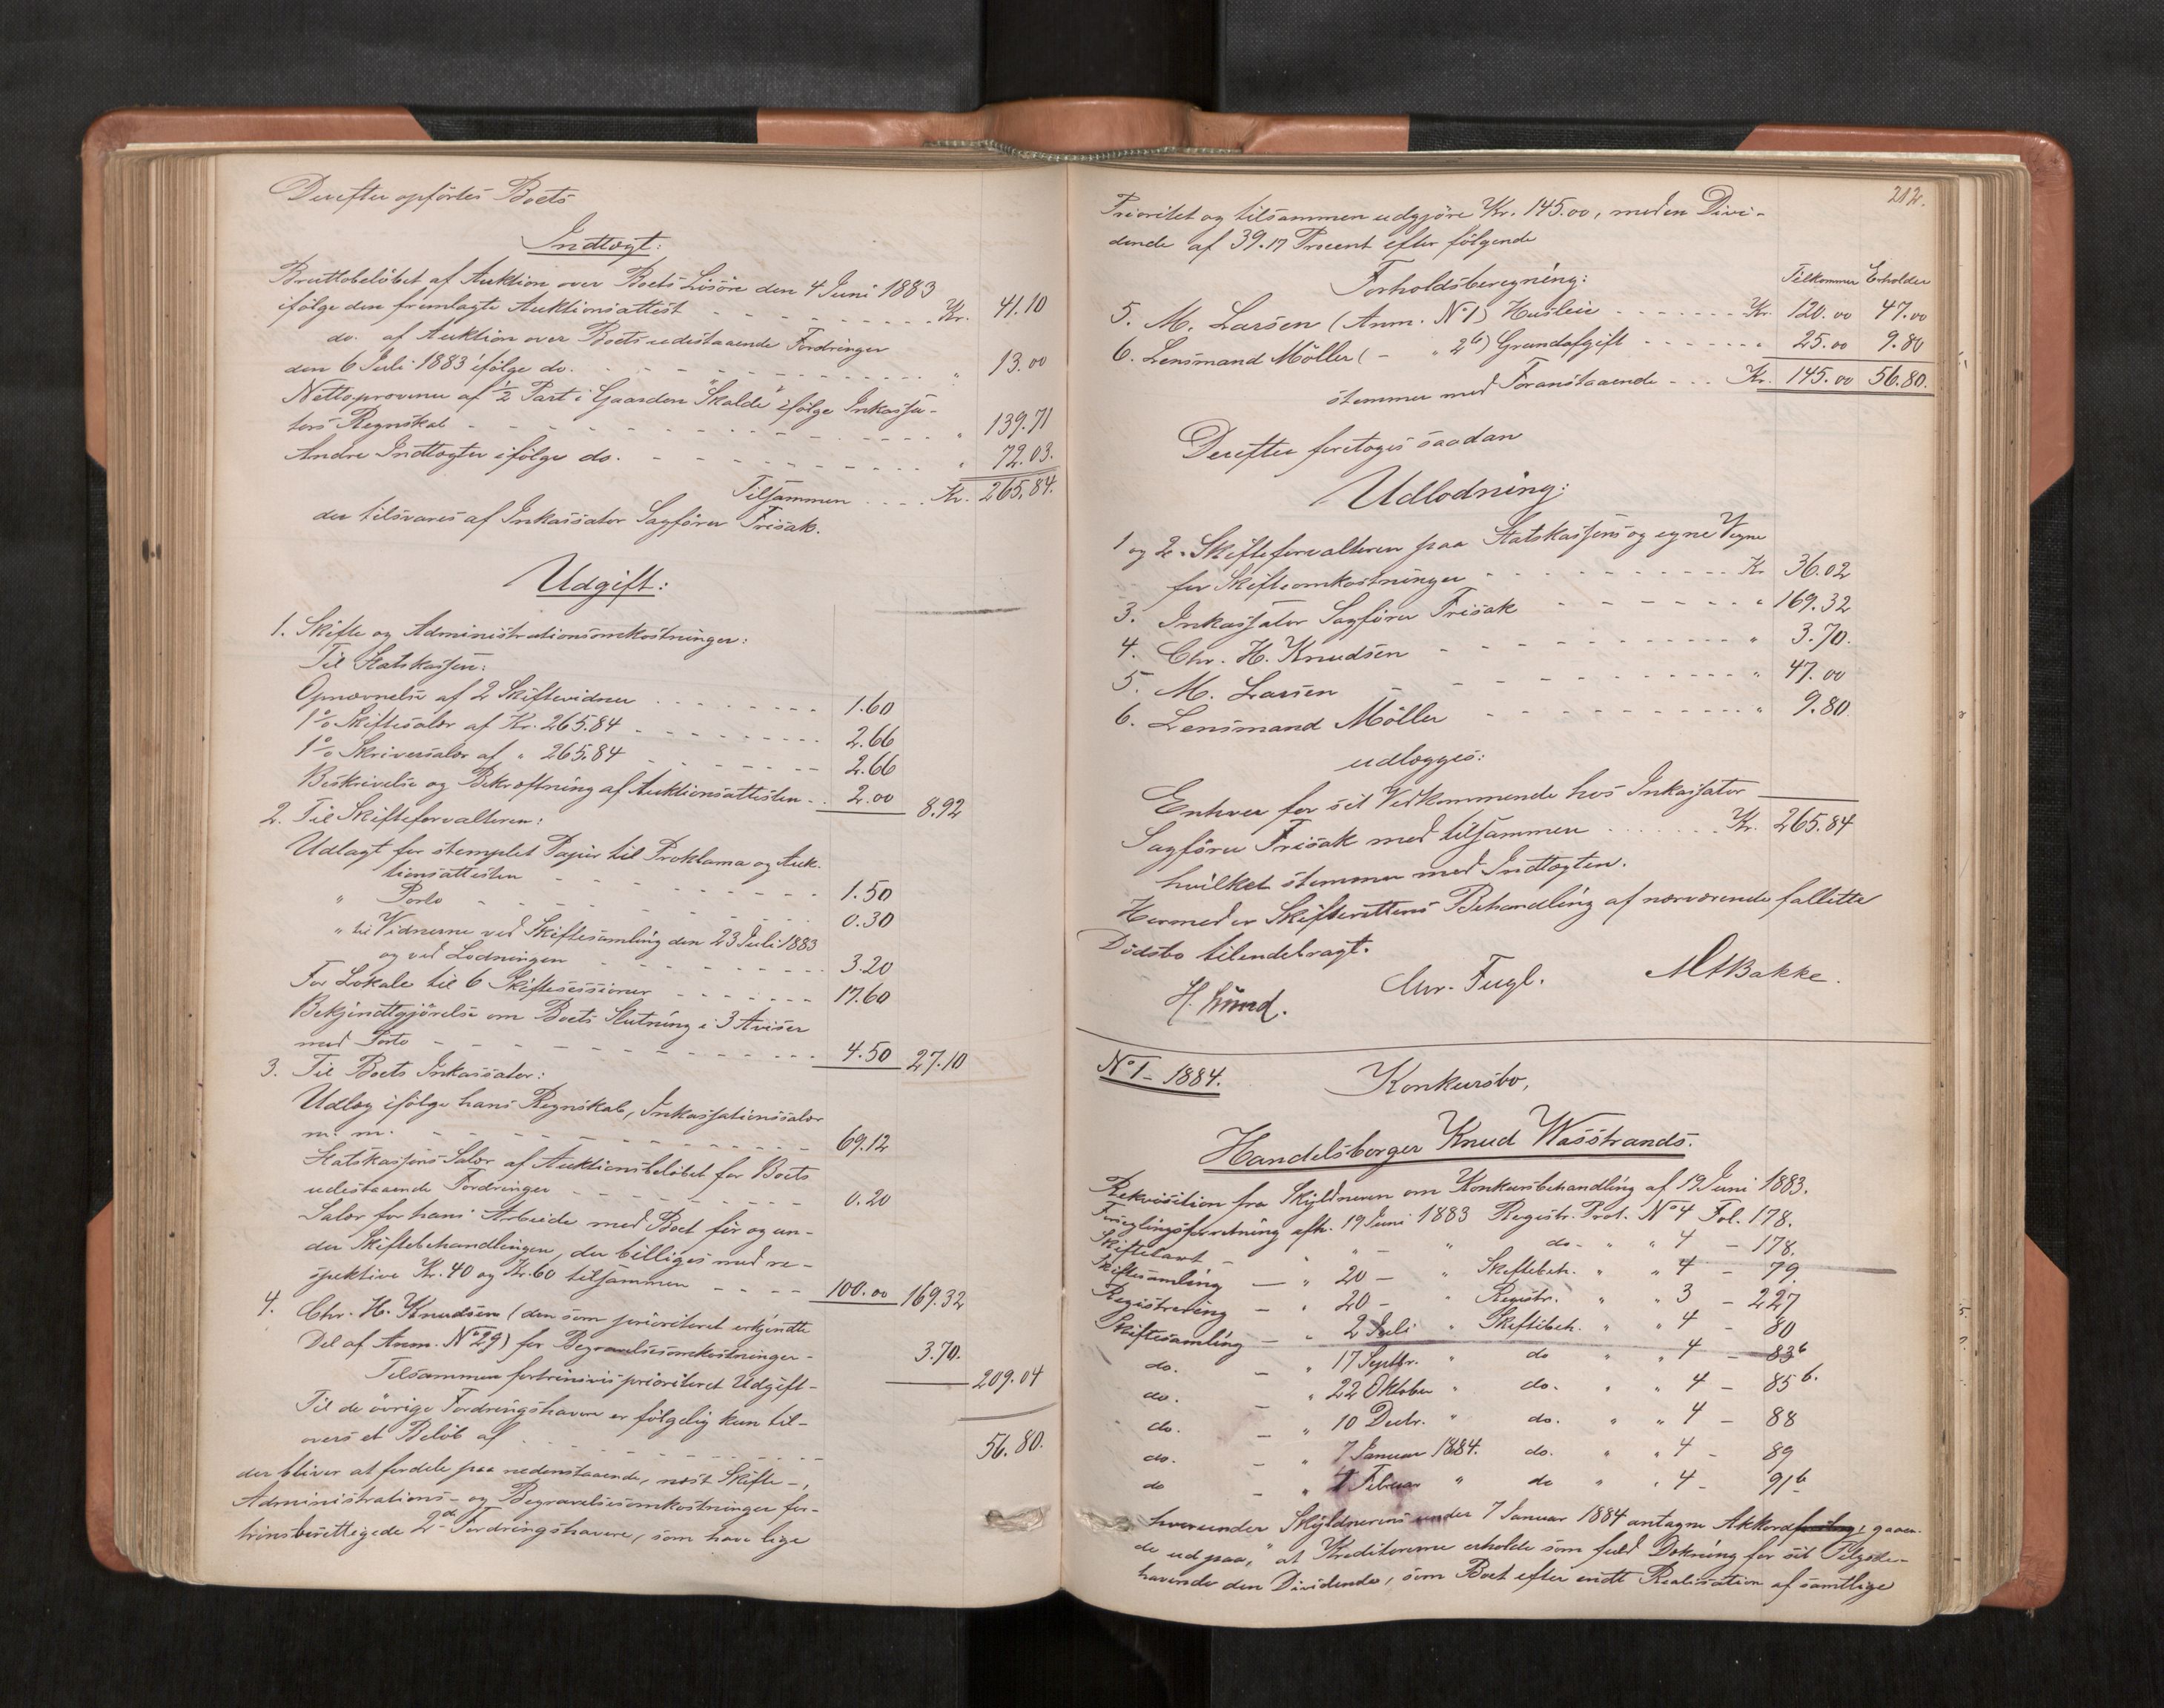 Derefter opförtes Boets
Indtægt:
Bruttobelöbet af Auktion over Boets Lösöre den 4 Juni 1883
ifölge den fremlagte Auktionsattest - - - - Kr. 41.10
do. af Auktion over Boets udestaaende Fordringer
den 6 Juli 1883 ifölge do. - - - - " 13.00
Nettoprovenu af 1/2 Part i Gaarden "Skalde" ifölge Inkassa-
tors Regnskab - - - - " 139.71
Andre Indtægter ifölge do. - - - - " 72.03.
Tilsammen . . . . Kr. 265.84.
der tilsvares af Inkassator Sagförer Frisak.
Udgift:
1. Skifte og Administrationsomkostninger:
Til Statskassen:
Opnævnelse af 2 Skiftevidner . . . . 1.60
1% Skiftesalær af Kr. 265.84 - - - - 2.66
1% Skriversalær af " 265.84 - - - - 2.66
Beskrivelse og Bekræftning af Auktionsattesten - . 2.00 8.92
2. Til Skifteforvalteren:
Udlagt for stemplet Papir til Proklama og Auk-
tionsattesten - - - - 1.50
" Porto - - - - 0.30
" til Vidnerne ved Skiftesamling den 23 Juli 1883
og ved Lodningen - - - - 3.20
For Lokale til 6 Skiftesessioner - - - - 17.60
Bekjendtgjörelse om Boets Slutning i 3 Aviser
med Porto - - - - 4.50 27.10
3. Til Boets Inkassator:
Udlæg ifölge hans Regnskab, Inkassationssalær
m. m. - - - - 69.12
Statskassens Salær af Auktionsbelöbet for Boets
udestaaende Fordringer - - - - 0.20
Salær for hans Arbeide med Boet för og un-
der Skiftebehandlingen, der billiges med re-
spektive Kr. 40 og Kr. 60 tilsammen - - - - 100.00 169.32
4. Chr. H. Knudsen (den som prioriteret erkjendte
Del af Anm. No 29) for Begravelsesomkostninger - 3.70.
Tilsammen fortrinsvis prioriteret Udgift - 209.04
Til de övrige Fordringshavere er fölgelig kun til-
overs et Belöb af - - - - 56.80.
der bliver at fordele paa nedenstaaende, næst Skifte-,
Administrations- og Begravelsesomkostninger for-
trinsberettigede 2de Fordringshavere, som have lige
212.
Prioritet og tilsammen udgjöre Kr. 145.00, med en Divi-
dende af 39.17 Procent efter fölgende
Forholdsberegning: Tilkommer Erholder
5. M. Larsen (Anm. No 1) Husleie - - - - Kr. 120.00 47.00
6. Lensmand Möller ( - " 2b) Grundafgift - - - - " 25.00 9.80
stemmer med Foranstaaende - - - Kr. 145.00 56.80.
Derefter foretoges saadan
Udlodning:
1 og 2. Skifteforvalteren paa Statskassens og egne Vegne
for Skifteomkostninger - - - - Kr 36.02
3. Inkassator Sagförer Frisak - - - - " 169.32
4. Chr. H. Knudsen - - - - " 3.70.
5. M. Larsen - - - - " 47.00
6. Lensmand Möller - - - - " 9.80.
udlægges:
Enhver for sit Vedkommende hos Inkassator
Sagförer Frisak med tilsammen . . . . Kr. 265.84
hvilket stemmer med Indtægten.
Hermed er Skifterettens Behandling af nærværende fallitte
Dödsbo tilendebragt.
Chr. Fugl. Bakke.
H.
No 1 - 1884. Konkursbo,
Handelsborger Knud Wasstrands.
Rekvisition fra Skyldneren om Konkursbehandling af 19 Juni 1883.
Forseglingsforretning afh. 19 Juni 1883 Registr. Prot. No 4 Fol. 178.
Skiftetaxt - " - " do - " " 4 - 178.
Skiftesamling - " 20 - " Skiftebeh. " " 4 - 79.
Registrering - " 20 - " Registr. " " 3 - 227
Skiftesamling - " 2 Juli " Skiftebeh. " " 4 - 80
do. - " 17 Septbr. " do " " 4 - 83b
do. - " 22 Oktober " do. " " 4 - 85b.
do. - " 10 Decbr. " do. " " 4 - 88
do. - " 7 Januar 1884. do. " " 4 - 89
do - " 4 Februar " do " " 4 - 91b
hvorunder Skyldnerens under 7 Januar 1884 antagne Akkord, gaaen-
de ud paa, "at Kreditorerne erholde som fuld Dækning for sit Tilgode-
havende den Dividende, som Boet efter endt Realisation af samtlige